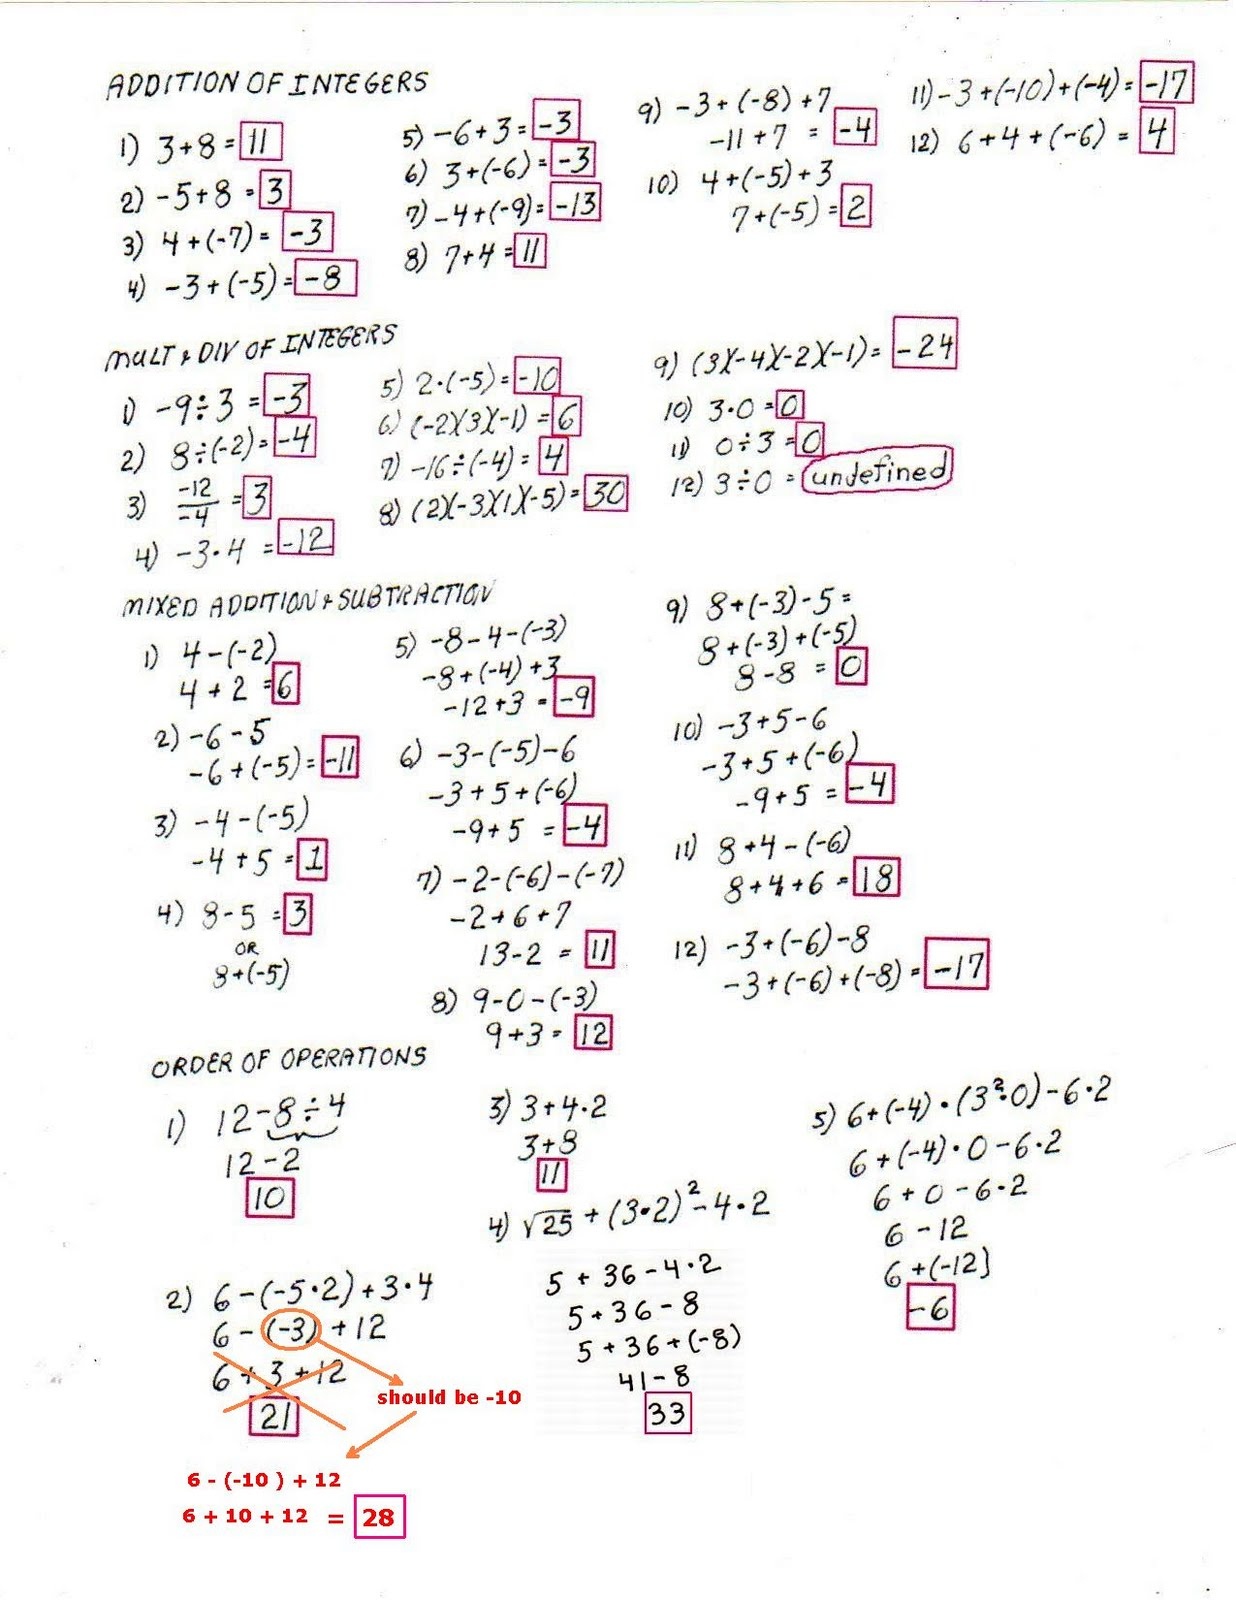 ADDITION OF INTEGERS
1) 3+8 = 11
2) -5+8 = 3
3) 4+(-7) = -3
4) -3+(-5) = -8
5) -6+3 = -3
6) 3+(-6) = -3
7) -4+(-9) = -13
8) 7+4 = 11
9) -3+(-8)+7
-11+7 = -4
10) 4+(-5)+3
7+(-5) = 2
11) -3+(-10)+(-4) = -17
12) 6+4+(-6) = 4
MULT & DIV OF INTEGERS
1) -9÷3 = -3
2) 8÷(-2) = -4
3) -12/-4 = 3
4) -3•4 = -12
5) 2•(-5) = -10
6) (-2)(3)(-1) = 6
7) -16÷(-4) = 4
8) (2)(-3)(1)(-5) = 30
9) (3)(-4)(-2)(-1) = -24
10) 3•0 = 0
11) 0÷3 = 0
12) 3÷0 = undefined
MIXED ADDITION & SUBTRACTION
1) 4-(-2)
4+2 = 6
2) -6-5
-6+(-5) = -11
3) -4-(-5)
-4+5 = 1
4) 8-5 = 3
OR
8+(-5)
5) -8-4-(-3)
-8+(-4)+3
-12+3 = -9
6) -3-(-5)-6
-3+5+(-6)
-9+5 = -4
7) -2-(-6)-(-7)
-2+6+7
13-2 = 11
8) 9-0-(-3)
9+3 = 12
9) 8+(-3)-5 =
8+(-3)+(-5)
8-8 = 0
10) -3+5-6
-3+5+(-6)
-9+5 = -4
11) 8+4-(-6)
8+4+6 = 18
12) -3+(-6)-8
-3+(-6)+(-8) = -17
ORDER OF OPERATIONS
1) 12-8÷4
12-2
10
2) 6-(-5•2)+3•4
6-(-3)+12
6+3+12
21
should be -10
6 - (-10 ) + 12
6 + 10 + 12 = 28
3) 3+4•2
3+8
11
4) √25+(3•2)²-4•2
5+36-4•2
5+36-8
5+36+(-8)
41-8
33
5) 6+(-4)•(3²•0)-6•2
6+(-4)•0-6•2
6+0-6•2
6-12
6+(-12)
-6